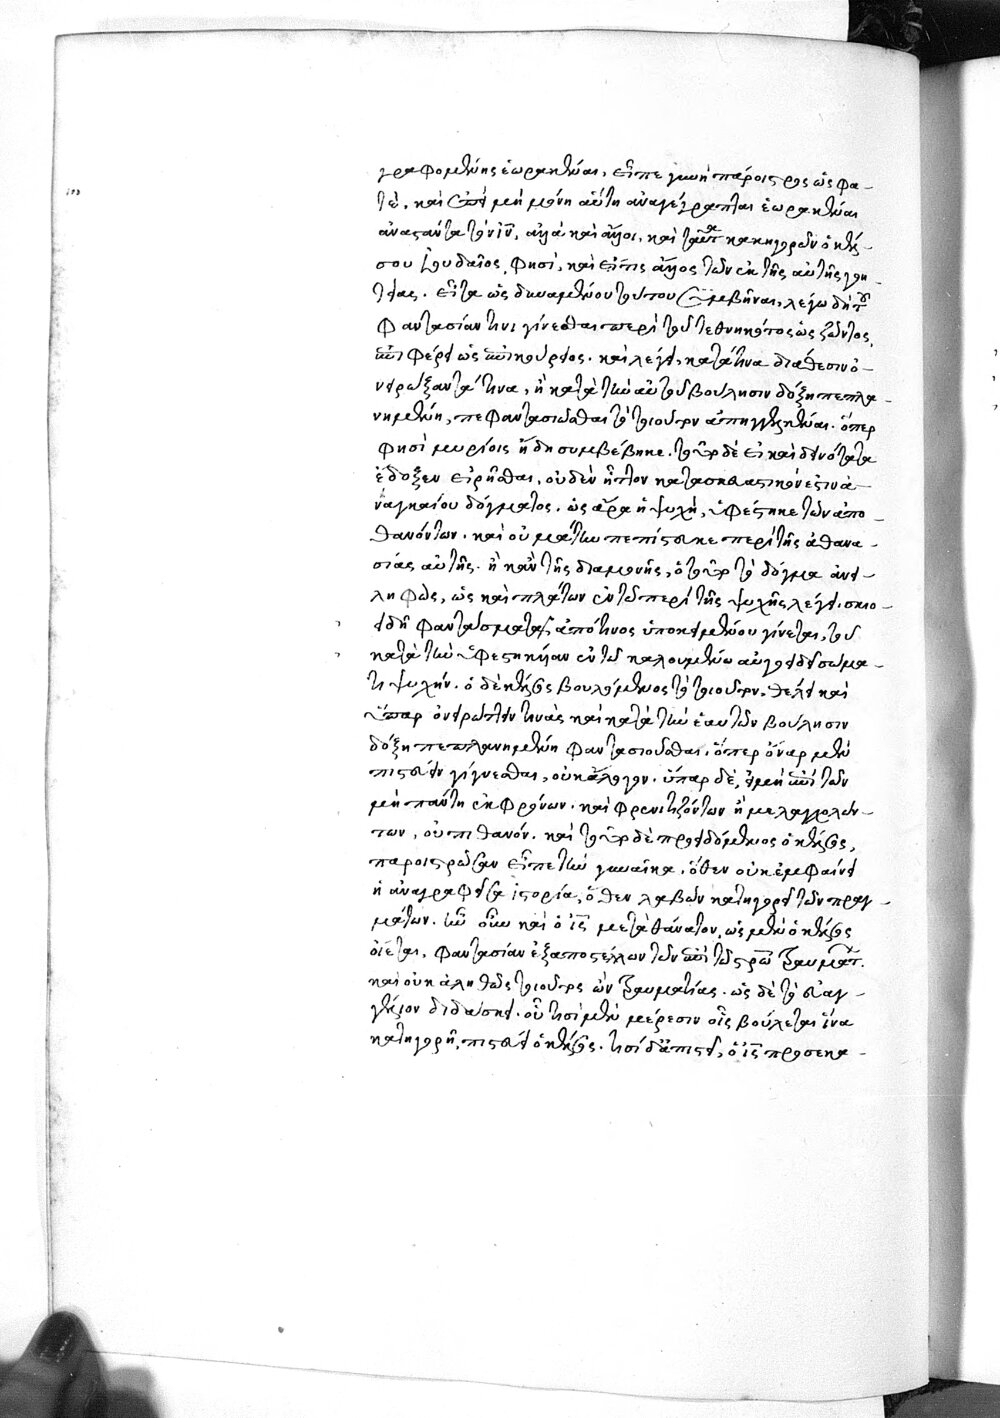 γραφομένης ἑωρακέναι, εἶπε γυνὴ πάροιστρος ὡς φα-
τέ. καὶ ἐπεὶ μὴ μόνη αὕτη ἀναγέγραπται ἑωρακέναι
ἀναστάντα τὸν ιν, ἀλλὰ καὶ ἄλλοι, καὶ ταῦτα κακηγορῶν ὁ κέλ-
σου ἰουδαῖος, φησί, καὶ εἴ τις ἄλλος τῶν ἐκ τῆς αὐτῆς γοη-
τείας. εἶτα ὡς δυναμένου τούτου συμβῆναι, λέγω δὴ τοῦ
φαντασίαν τινὶ γίνεσθαι περὶ τοῦ τεθνηκότος ὡς ζῶντος,
ἐπιφέρει ὡς ἐπικούρειος. καὶ λέγει, κατά τινα διάθεσιν ὀ-
νειρώξαντά τινα, ἢ κατὰ τὴν αὐτοῦ βούλησιν δόξῃ πεπλα-
νημένῃ, πεφαντασιῶσθαι τὸ τοιοῦτον ἀπηγγελκέναι. ὅπερ
φησὶ μυρίοις ἤδη συμβέβηκε. τοῦτο δὲ εἰ καὶ δεινότατα
ἔδοξεν εἰρῆσθαι, οὐδὲν ἧττον κατασκευαστικόν ἐστιν ἀ-
ναγκαίου δόγματος. ὡς ἄρα ἡ ψυχὴ, ὑφέστηκε τῶν ἀπο-
θανόντων. καὶ οὐ μάτην πεπίστευκε περὶ τῆς ἀθανα-
σίας αὐτῆς. ἢ κἂν τῆς διαμονῆς, ὁ τοῦτο τὸ δόγμα ἀνει-
ληφώς, ὡς καὶ πλάτων ἐν τῶ περὶ τῆς ψυχῆς λέγει. σκιο-
ειδῆ φαντάσματα ἀπό τινος ὑποκειμένου γίνεται, τοῦ
κατὰ τὴν ὑφεστηκυῖαν ἐν τῶ καλουμένω αὐγοειδεῖ σώμα-
τι ψυχήν. ὁ δὲ κέλσος βουλόμενος τὸ τοιοῦτον. θέλει καὶ
ὕπαρ ὀνειρώττειν τινὰς καὶ κατὰ τὴν ἑαυτῶν βούλησιν
δόξῃ πεπλανημένῃ φαντασιοῦσθαι. ὅπερ ὄναρ μὲν
πιστεύειν γίγνεσθαι, οὐκ ἄλογον. ὕπαρ δὲ, ἐπὶ τῶν
μὴ πάντη ἐκφρόνων. καὶ φρενιτιζόντων ἢ μελαγχολών-
των, οὐ πιθανόν. καὶ τοῦτο δὲ προειδόμενος ὁ κέλσος,
παροιστρῶσαν εἶπε τὴν γυναῖκα. ὅθεν οὐκ ἐμφαίνει
ἡ ἀναγράψασα ἱστορία, ὅθεν λαβὼν κατηγορεῖ τῶν πραγ-
μάτων. ἦν οὖν καὶ ὁ ις μετὰ θάνατον, ὡς μὲν ὁ κέλσος
οἴεται, φαντασίαν ἐξαποστέλλων τῶν ἐπὶ τῶ σταυρῶ τραυμάτων.
καὶ οὐκ ἀληθῶς τοιοῦτος ὢν τραυματίας. ὡς δὲ τὸ εὐαγ-
γέλιον διδάσκει. οὗ τισὶ μὲν μέρεσιν οἷς βούλεται ἵνα
κατηγορῇ, πιστεύει ὁ κέλσος. τισὶ δ' ἀπιστεῖ, ὁ ις προσεκα-